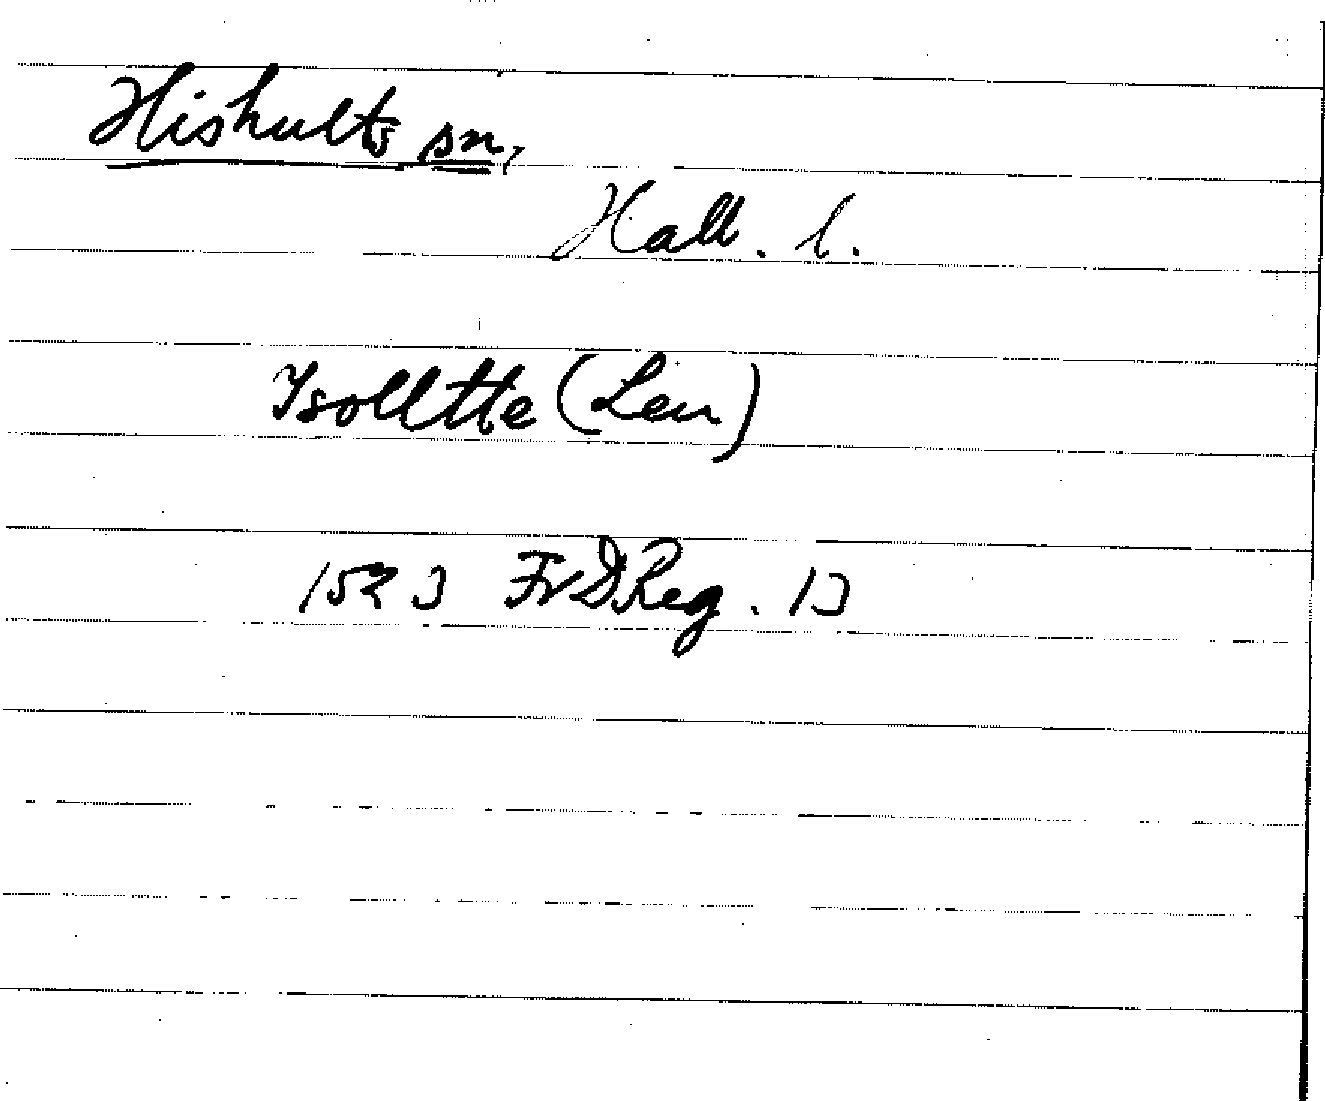 Hishults sn,
Hall. l.
Ysolltte (Len)
1523 FrDReg. 13